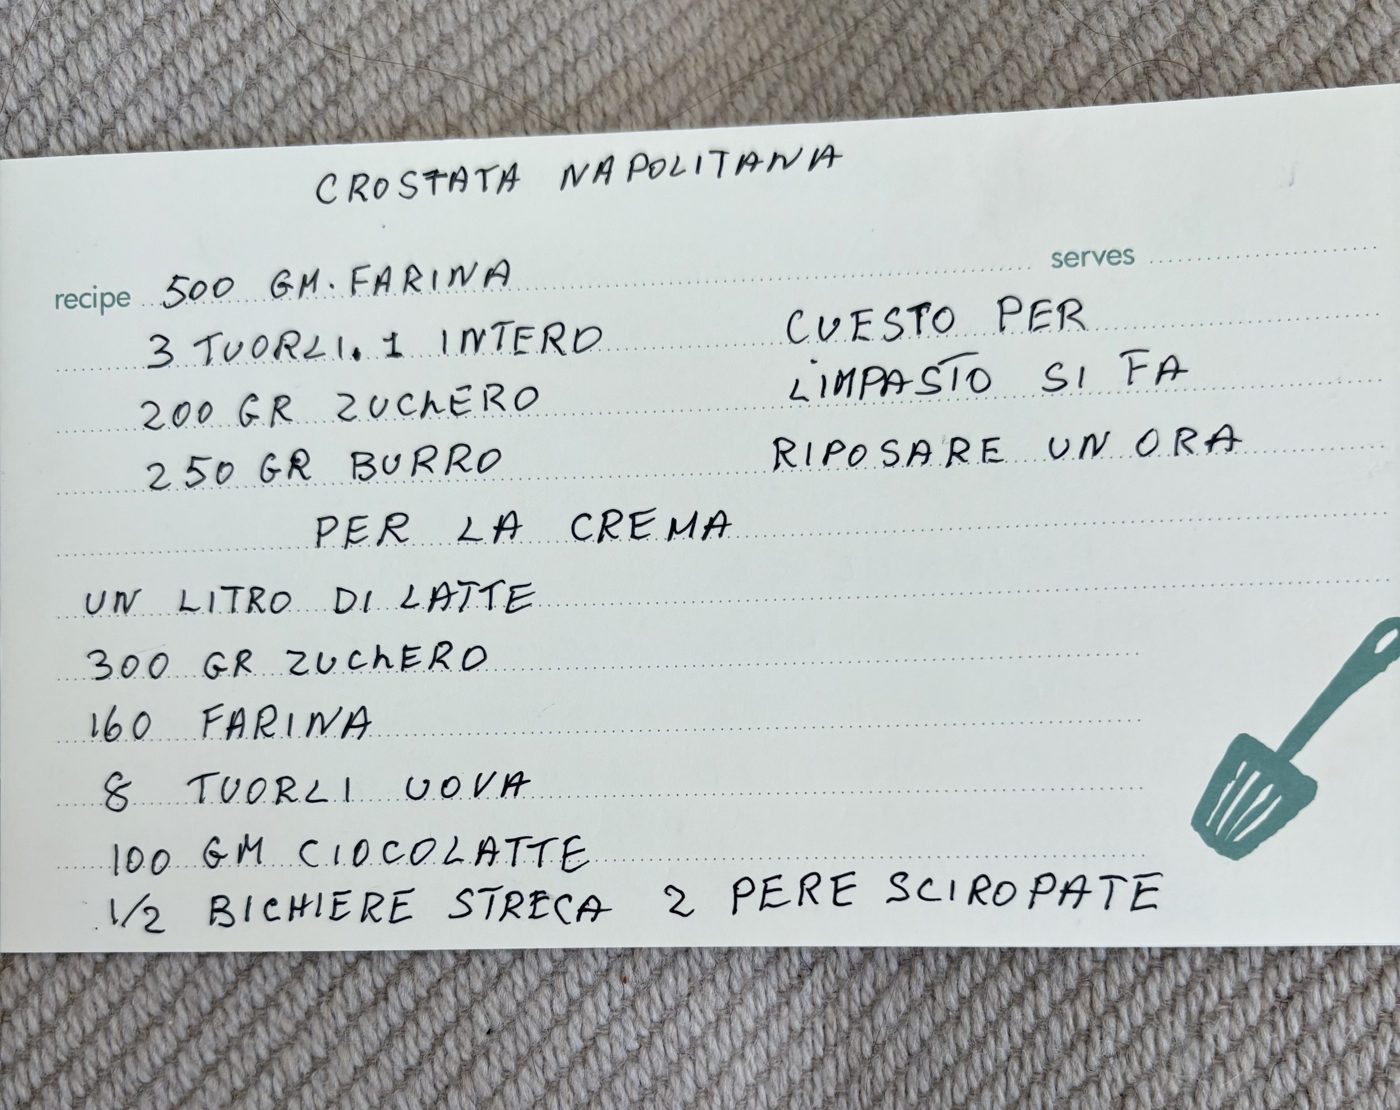 CROSTATA NAPOLITANA
recipe 500 GM. FARINA serves
3 TUORLI. 1 INTERO
200 GR ZUChERO
250 GR BURRO
CUESTO PER
L'IMPASTO SI FA
RIPOSARE UN ORA
PER LA CREMA
UN LITRO DI LATTE
300 GR ZUChERO
160 FARINA
8 TUORLI UOVA
100 GM CIOCOLATTE
1/2 BICHIERE STRECA 2 PERE SCIROPATE